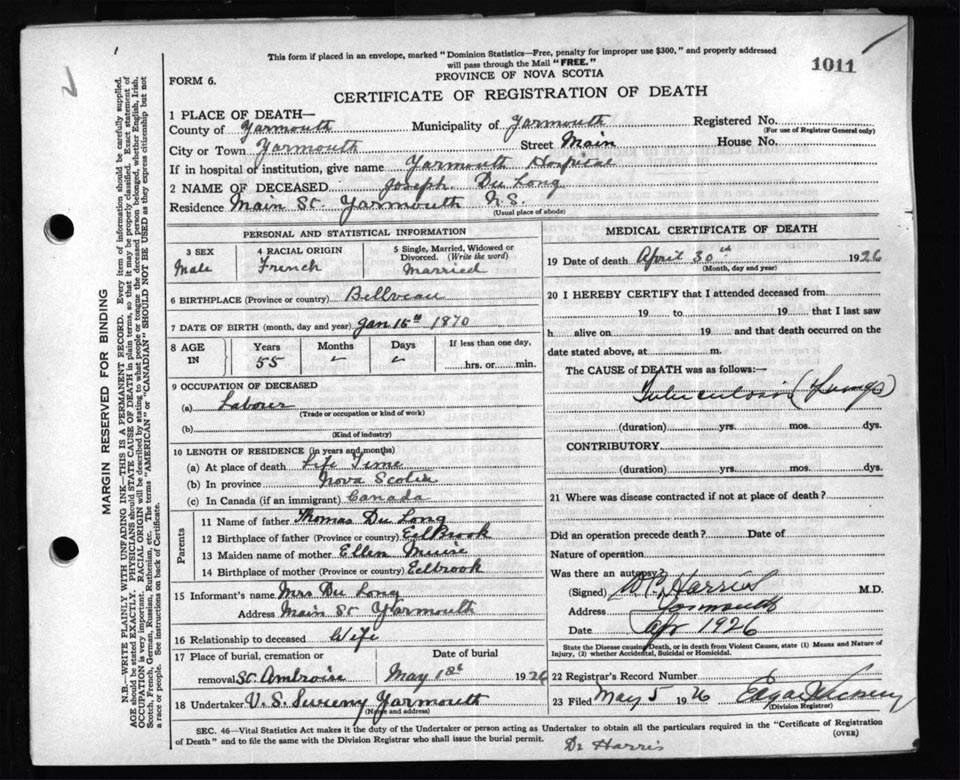 This form if placed in an envelope, marked "Dominion Statistics—Free, penalty for improper use $300," and properly addressed
will pass through the Mail "FREE."
1011
FORM 6.
PROVINCE OF NOVA SCOTIA
CERTIFICATE OF REGISTRATION OF DEATH
1 PLACE OF DEATH—
County of Yarmouth Municipality of Yarmouth Registered No.
(For use of Registrar General only)
City or Town Yarmouth Street Main House No.
If in hospital or institution, give name Yarmouth Hospital
2 NAME OF DECEASED Joseph Du Long
Residence Main St. Yarmouth N.S.
(Usual place of abode)
PERSONAL AND STATISTICAL INFORMATION
3 SEX 4 RACIAL ORIGIN 5 Single, Married, Widowed or
Divorced. (Write the word)
Male French Married
6 BIRTHPLACE (Province or country) Bellveau
7 DATE OF BIRTH (month, day and year) Jan 15th 1870
8 AGE IN Years Months Days If less than one day,
55 hrs. or min.
9 OCCUPATION OF DECEASED
(a) Labourer
(Trade or occupation or kind of work)
(b)
(Kind of industry)
10 LENGTH OF RESIDENCE (in years and months)
(a) At place of death Life Time
(b) In province Nova Scotia
(c) In Canada (if an immigrant) Canada
Parents
11 Name of father Thomas Du Long
12 Birthplace of father (Province or country) Eelbrook
13 Maiden name of mother Ellen Muise
14 Birthplace of mother (Province or country) Eelbrook
15 Informant's name Mrs Du Long
Address Main St Yarmouth
16 Relationship to deceased Wife
17 Place of burial, cremation or Date of burial
removal St. Ambroise May 1st 1926
18 Undertaker V. S. Sweeny Yarmouth
MEDICAL CERTIFICATE OF DEATH
19 Date of death April 30th 1926
(Month, day and year)
20 I HEREBY CERTIFY that I attended deceased from
19 to 19 that I last saw
h alive on 19 and that death occurred on the
date stated above, at m.
The CAUSE of DEATH was as follows:—
Tuberculosis (Lungs)
(duration) yrs. mos. dys.
CONTRIBUTORY
(duration) yrs. mos. dys.
21 Where was disease contracted if not at place of death?
Did an operation precede death? Date of
Nature of operation
Was there an autopsy?
(Signed) Harris M.D.
Address Yarmouth
Date Apr 1926
State the Disease causing Death, or in death from Violent Causes, state (1) Means and Nature of
Injury, (2) whether Accidental, Suicidal or Homicidal.
22 Registrar's Record Number
23 Filed May 5 1926 Edgar
(Division Registrar)
SEC. 46—Vital Statistics Act makes it the duty of the Undertaker or person acting as Undertaker to obtain all the particulars required in the "Certificate of Registration
of Death" and to file the same with the Division Registrar who shall issue the burial permit.
(OVER)
Dr Harris
MARGIN RESERVED FOR BINDING
N.B.—WRITE PLAINLY WITH UNFADING INK—THIS IS A PERMANENT RECORD. Every item of information should be carefully supplied.
AGE should be stated EXACTLY. PHYSICIANS should STATE CAUSE OF DEATH in plain terms, so that it may be properly classified. Exact statement of
OCCUPATION is very important. RACIAL ORIGIN will be described by stating to what people or tongue the deceased person belonged, whether English, Irish,
Scotch, French, German, Russian, Ruthenian, etc. The terms "AMERICAN" or "CANADIAN" SHOULD NOT BE USED as they express citizenship but not
a race or people. See instructions on back of Certificate.